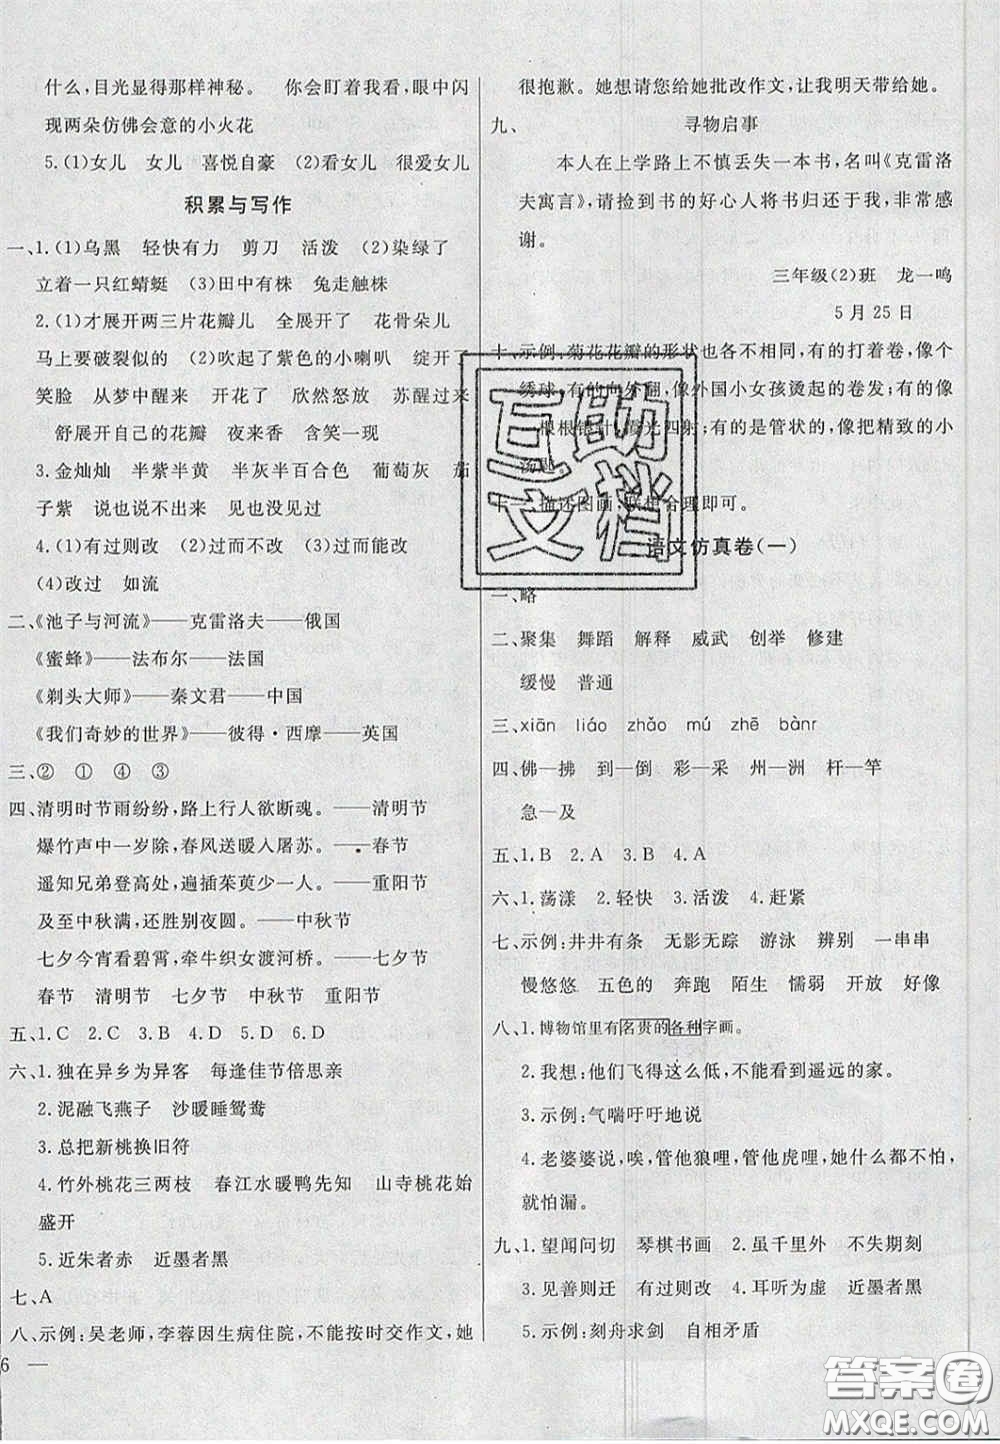 什么,目光显得那样神秘。　你会盯着我看,眼中闪
现两朵仿佛会意的小火花
5.(1)女儿　女儿　喜悦自豪　(2)看女儿　很爱女儿
积累与写作
一、1.(1)乌黑　轻快有力　剪刀　活泼　(2)染绿了
立着一只红蜻蜓　(3)田中有株　兔走触株
2.(1)才展开两三片花瓣儿　全展开了　花骨朵儿
马上要破裂似的　(2)吹起了紫色的小喇叭　绽开了
笑脸　从梦中醒来　开花了　欣然怒放　苏醒过来
舒展开自己的花瓣　夜来香　含笑一现
3.金灿灿　半紫半黄　半灰半百合色　葡萄灰　茄
子紫　说也说不出来　见也没见过
4.(1)有过则改　(2)过而不改　(3)过而能改
(4)改过　如流
二、《池子与河流》——克雷洛夫——俄国
《蜜蜂》——法布尔——法国
《剃头大师》——秦文君——中国
《我们奇妙的世界》——彼得·西摩——英国
三、②　①　④　③
四、清明时节雨纷纷,路上行人欲断魂。——清明节
爆竹声中一岁除,春风送暖入屠苏。——春节
遥知兄弟登高处,遍插茱萸少一人。——重阳节
及至中秋满,还胜别夜圆。——中秋节
七夕今宵看碧霄,牵牛织女渡河桥。——七夕节
春节　清明节　七夕节　中秋节　重阳节
五、1.C　2.C　3.D　4.D　5.D　6.D
六、1.独在异乡为异客　每逢佳节倍思亲
2.泥融飞燕子　沙暖睡鸳鸯
3.总把新桃换旧符
4.竹外桃花三两枝　春江水暖鸭先知　山寺桃花始
盛开
5.近朱者赤　近墨者黑
七、A
八、示例:吴老师,李蓉因生病住院,不能按时交作文,她
6 —
很抱歉。她想请您给她批改作文,让我明天带给她。
九、　寻物启事
本人在上学路上不慎丢失一本书,名叫《克雷洛
夫寓言》,请捡到书的好心人将书归还于我,非常感
谢。
三年级(2)班　龙一鸣
5月25日
十、示例:菊花花瓣的形状也各不相同,有的打着卷,像个
绣球;有的向外翻,像外国小女孩烫起的卷发;有的像
根根银针,寒光四射;有的是管状的,像把精致的小
汤匙。
十一、描述图画,联想合理即可。
互助文档
语文仿真卷(一)
一、略
二、聚集　舞蹈　解释　威武　创举　修建
缓慢　普通
三、xiān　liáo　zhǎo　mú　zhē　bànr
四、佛—拂　到—倒　彩—采　州—洲　杆—竿
急—及
五、1.B　2.A　3.B　4.A
六、1.荡漾　2.轻快　3.活泼　4.赶紧
七、示例:井井有条　无影无踪　游泳　辨别　一串串
慢悠悠　五色的　奔跑　陌生　懦弱　开放　好像
八、1.博物馆里有名贵的各种字画。
2.我想:他们飞得这么低,不能看到遥远的家。
3.示例:气喘吁吁地说
4.老婆婆说,唉,管他狼哩,管他虎哩,她什么都不怕,
就怕漏。
九、1.望闻问切　琴棋书画　2.虽千里外　不失期刻
3.见善则迁　有过则改　4.耳听为虚　近墨者黑
5.示例:刻舟求剑　自相矛盾
答案圈
MXQE.COM